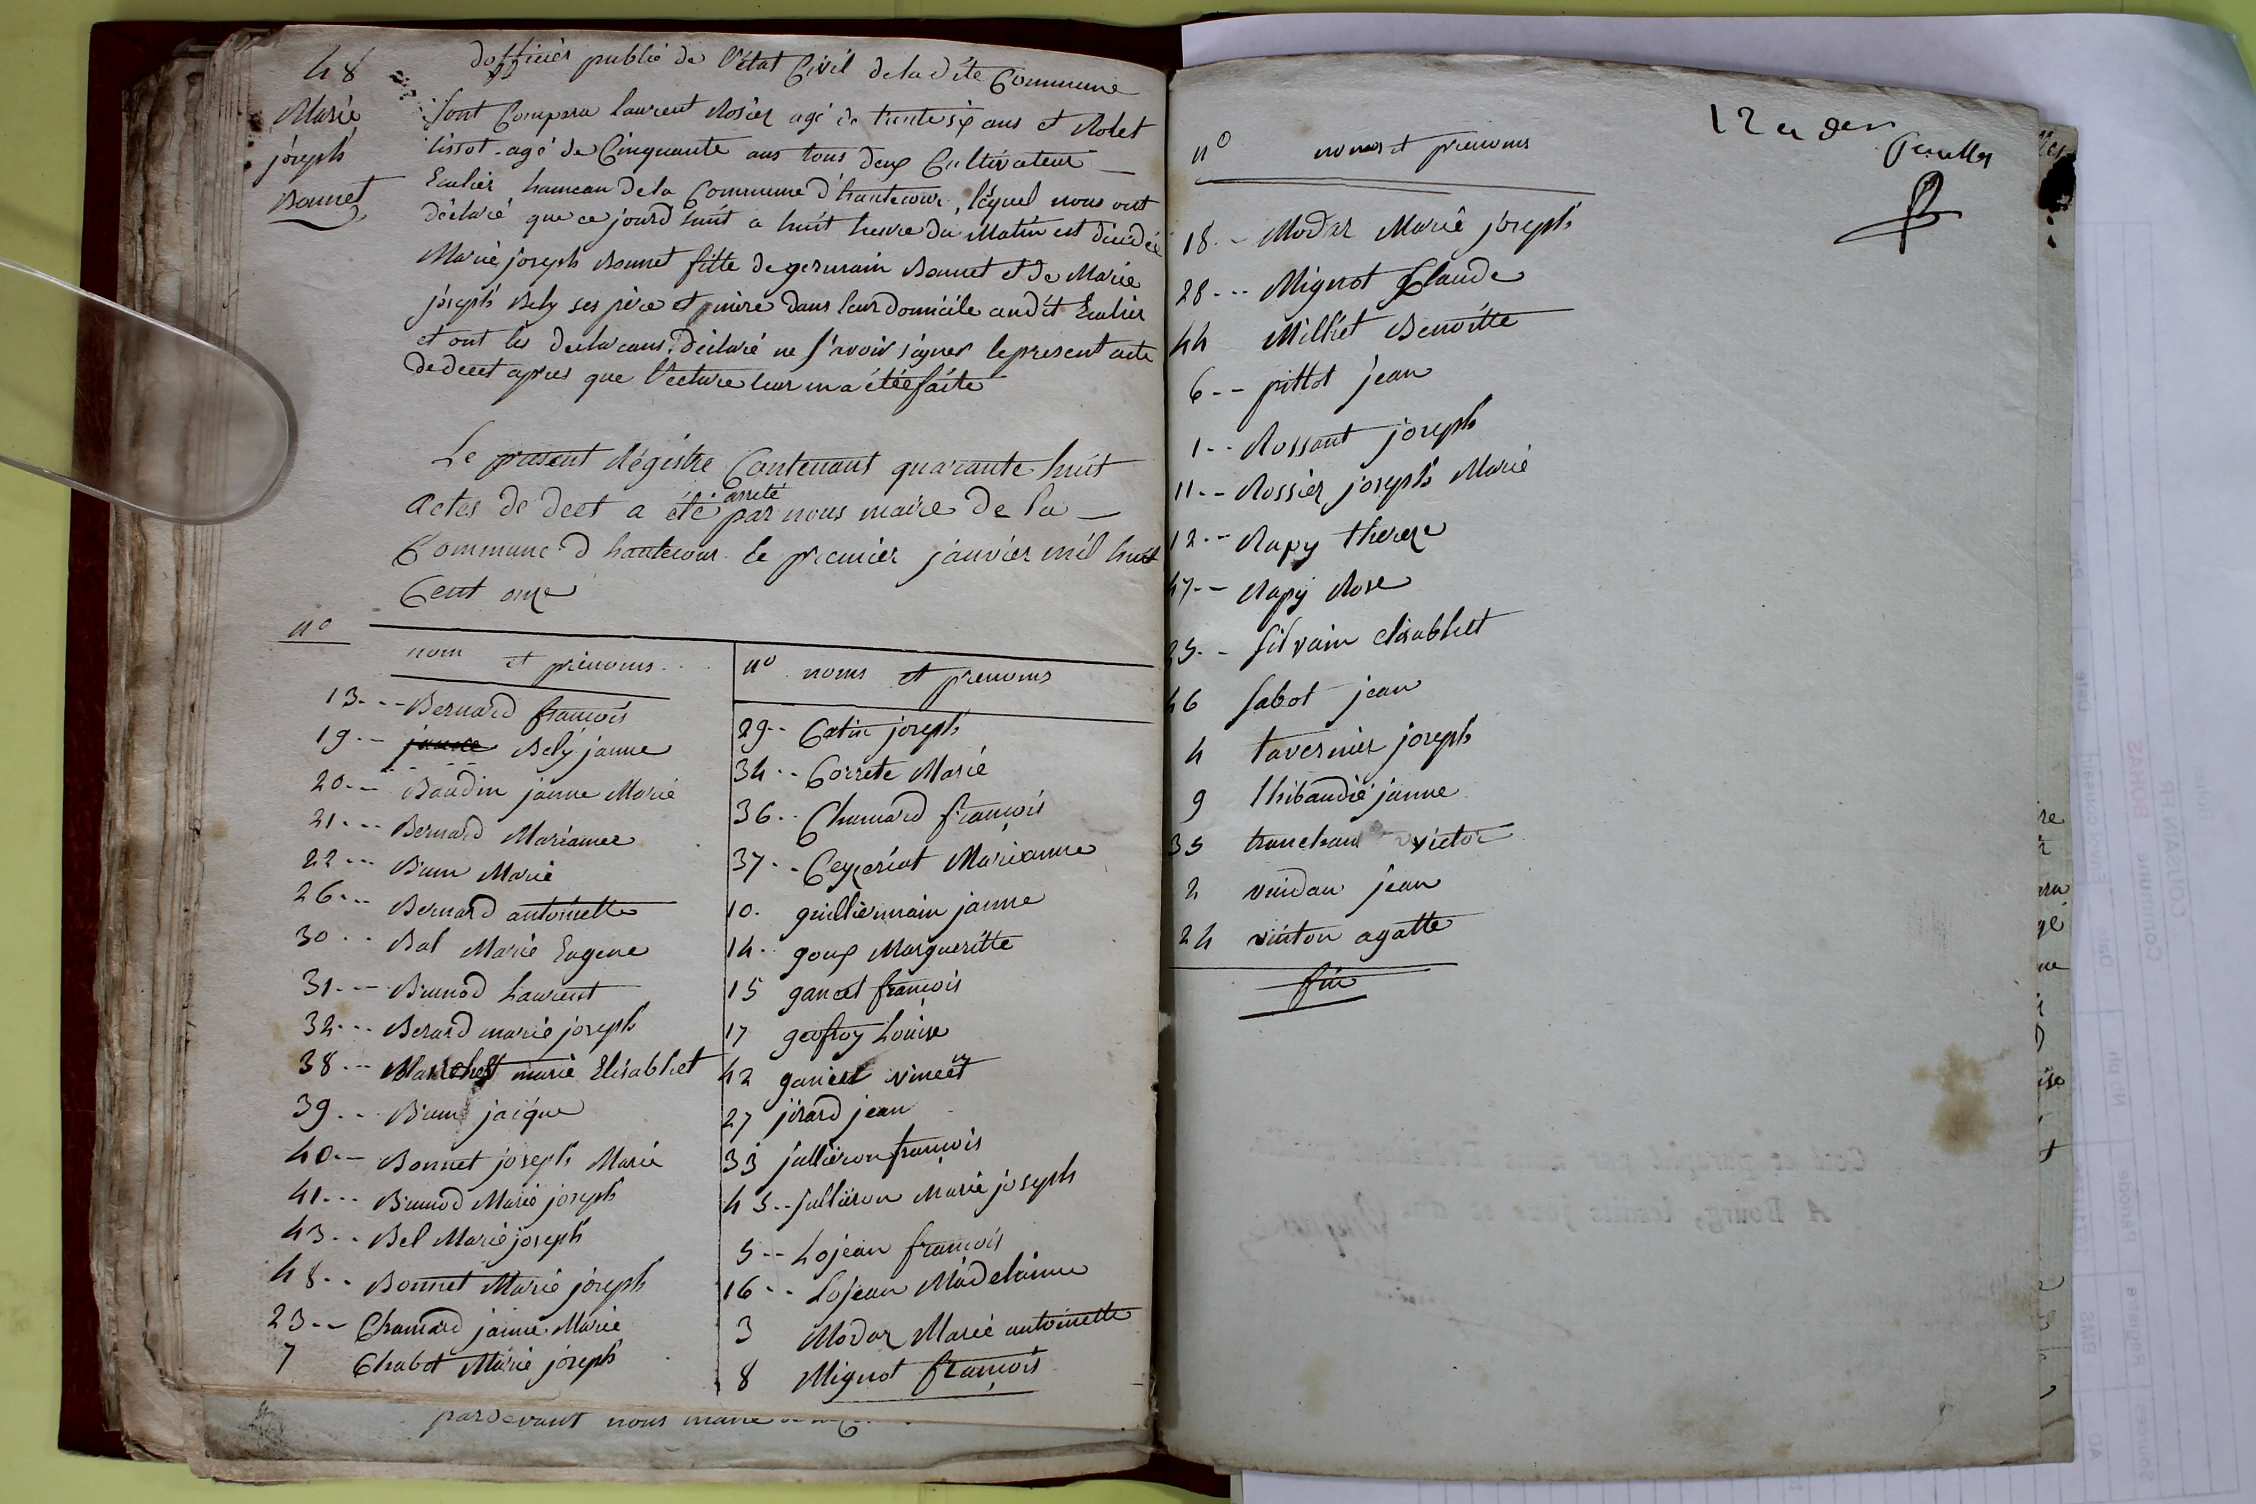 48
Marie
joseph
Bonnet
dofficier public de l'état Civil de la dite Commune
sont Comparu laurent Rosier agé de trente six ans et Rolet
tissot agé de Cinquante ans tous deux Cultivateur
hameau de la Commune d'hautecour, léquel nous ont
déclaré que ce jourd huit a huit heure du Matin est décédée
Marie joseph Bonnet fille de germain Bonnet et de Marie
joseph Bely ses père et mère dans leur domicile audit
et ont les declarans, déclaré ne s'avoir signer le present acte
de decet apres que lecture leur en a étée faite
Le present Régistre Contenant quarante huit
arrete
actes de decet a été par nous maire de la
Commune d hautecour le premier janvier mil huit
Cent onze
n°
nom et prénoms
13 Bernard francois
19 janne Bely janne
20 Baudin janne Marie
21 Bernard Marianne
22 Brun Marie
26 Bernard antoinette
30 Bal Marie Eugene
31 Brunod Laurent
32 Berard marie joseph
38 marie Elisablset
39 Brun jacque
40 Bonnet joseph Marie
41 Brunod Marie joseph
43 Bel Marie joseph
48 Bonnet Marie joseph
23 Chanard janne Marie
7 Chabot Marie joseph
n° noms et prenoms
29 Catin joseph
34 Correte Marie
36 Chanard francois
37 Ceyzeriat Marianne
10 guilliermain janne
14 goux Margueritte
15 gancet francois
17 geofroy Louise
42 gancet vincent
27 jirard jean
33 jullieron françois
45 jullieron Marie joseph
5 Lojean francois
16 Lojean Madelainne
3 Modaz Marie antoinette
8 Mignot françois
pardevant nous maire
12 et der
n° noms et prenoms
18 Modaz Marie joseph
28 Mignot Claude
44 Milliet Benoitte
6 pittot jean
1 Rossant joseph
11 Rossier joseph Marie
12 Rapy thereze
47 Rapy Rose
25 silvain elisablset
46 sabot jean
4 tavernier joseph
9 thibaudié janne
35 tranchant victor
2 vuidau jean
24 vuiton agatte
fin